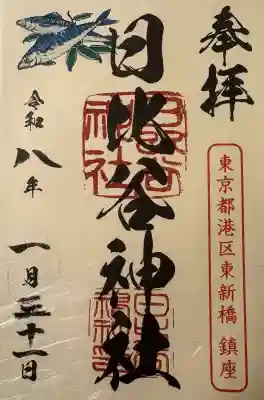 奉拝
東京都港区東新橋 鎮座
日比谷神社
令和八年
一月三十一日